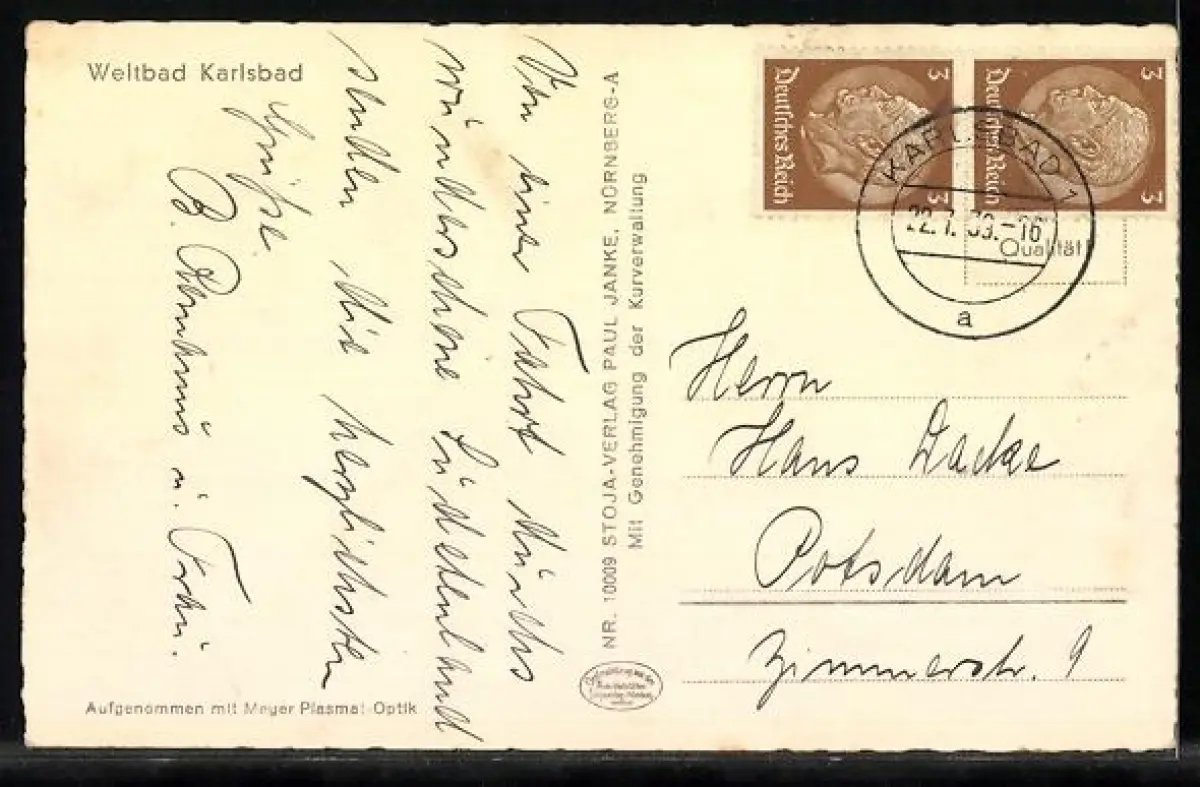 Weltbad Karlsbad
Von einer Fahrt durchs
wunderschöne Sudetenland
senden die herzlichsten
Grüße
B. u. Frau.
NR. 10009 STOJA-VERLAG PAUL JANKE, NÜRNBERG-A
Mit Genehmigung der Kurverwaltung
Aufgenommen mit Meyer Plasmat-Optik
3 Deutsches Reich 3
3 Deutsches Reich 3
KARLSBAD 1
22.7.39.-16
a
Qualität
Herrn
Hans Dacke
Potsdam
Zimmerstr. 9